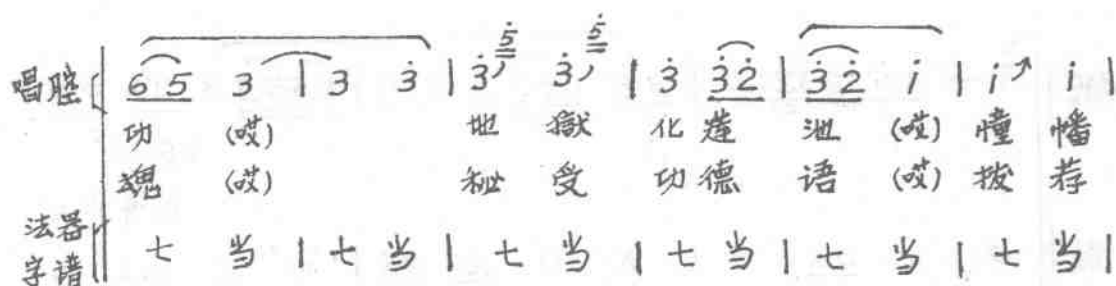 唱腔 6 5 3 | 3 3̇ | 3̇ 5̇ 3̇ 5̇ | 3̇ 3̇ 2̇ | 3̇ 2̇ i | i ↗ i |
功 (哎) 地 獄 化 莲 池 (哎) 幢 幡
魂 (哎) 秘 受 功 德 语 (哎) 拔 荐
法器字谱 七 当 | 七 当 | 七 当 | 七 当 | 七 当 | 七 当 |